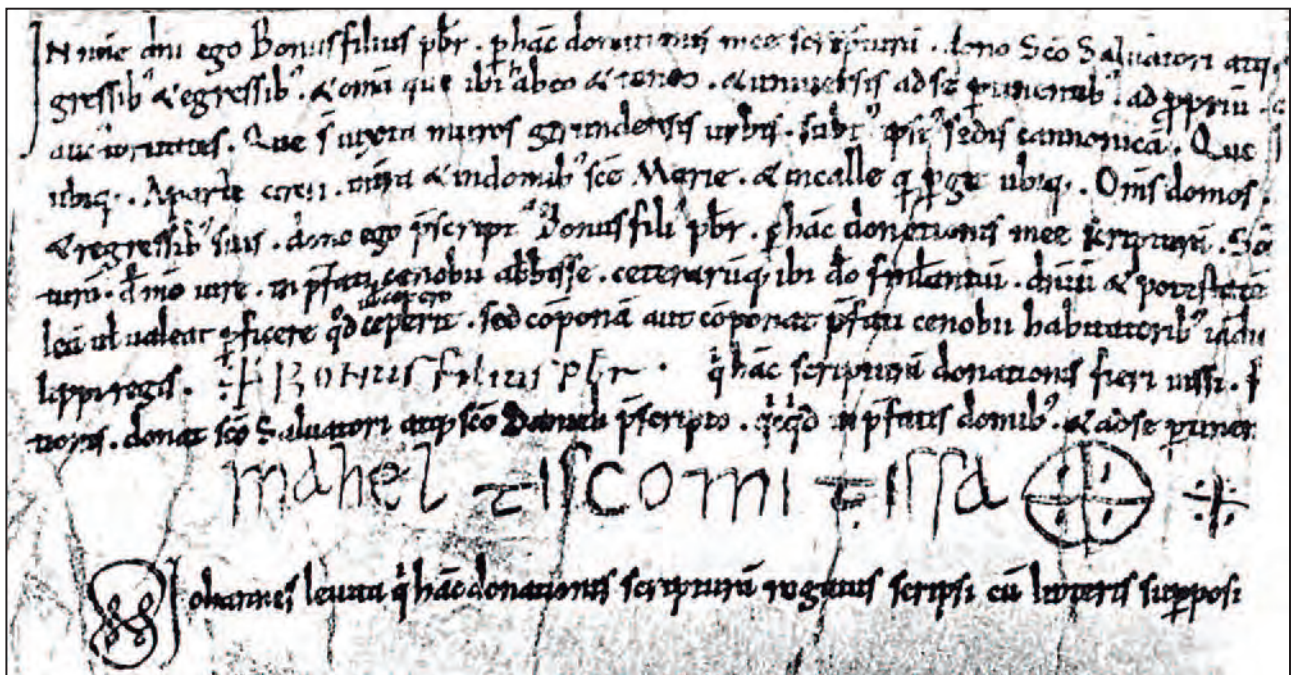 IN nñe dni ego Bonusfilius pbr. p hãc donationis mee scripturã. dono Sco Salvatori atq;
gressib' & egressib'. & omã que ibi abeo & teneo. & universis ad se ptinentib'. ad ppriũ.
auctoritatis. Que s iuxta muros gerundensis urbis. subt' ipsi' sedis cannonicã. Que
ubiq;. A parte circi. & in domib' sce Marie. & in calle q pgit ubiq;. Oms domos.
& regressib' suis. dono ego pscript' Bonusfili' pbr. p hãc donationis mee scripturã. Sco
iure. in pfati cenobii abbisse. ceterarũq; ibi do famlantiũ. & potestate
vl valeat pficere qd ceperit. sed cõponã aut cõponat pfati cenobii habitatorib'
lippi regis. Bonusfilius pbr. q hãc scripturã donationis fieri iussi.
donat sco Salvatori atq; sco Danieli pscripto. qcqd in pfatis domib'. & ad se ptinen
mahel tiscomitissa
Iohannes levita q hãc donationis scripturã rogatus scripsi cũ litteris supposi